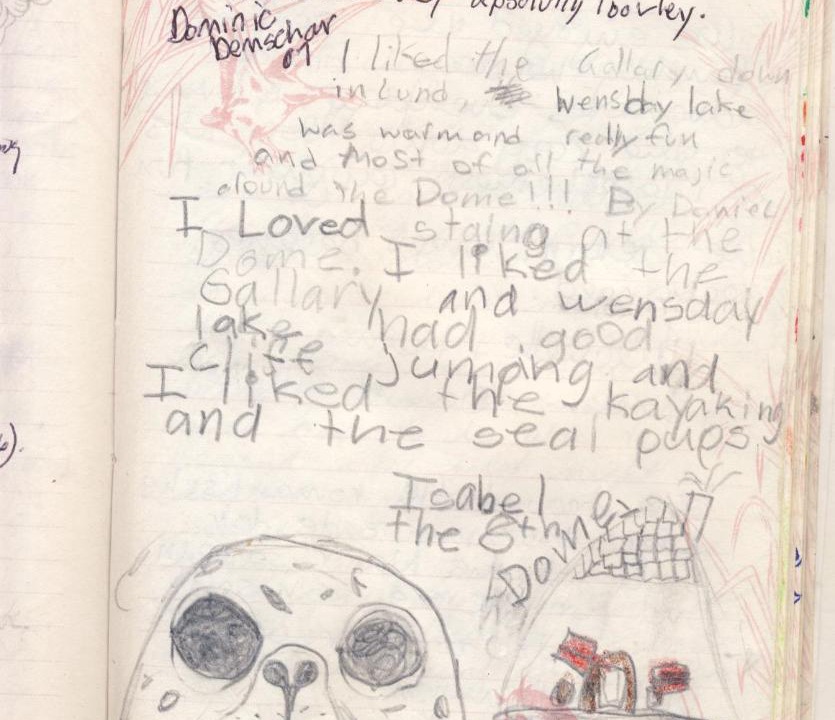 absolutly lovley.
Dominic
Demschar
01
I liked the Gallary down
in Lund, wensday lake
was warm and really fun
and Most of all the magic
around the Dome!!! By Daniel
I Loved staing at the
Dome. I liked the
Gallary and wensday
lake had good
cliff jumping and
I liked the kayaking
and the seal pups
Isabel
the 6th
Dome